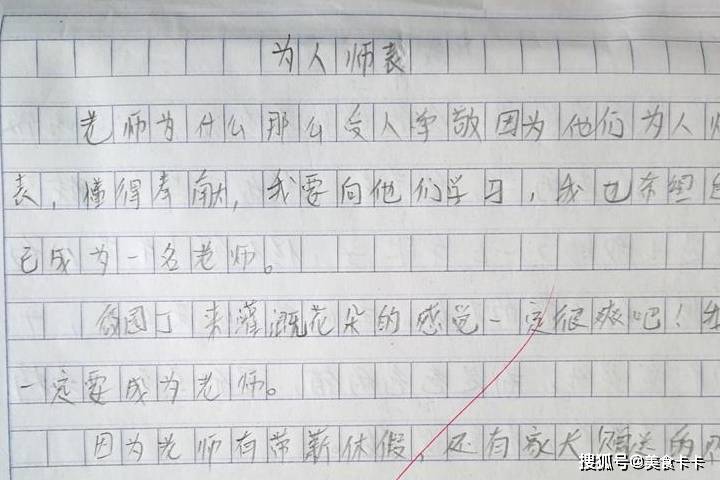 为人师表
老师为什么那么受人尊敬因为他们为人师
表，懂得奉献，我要向他们学习，我也希望自
己成为一名老师。
做园丁来灌溉花朵的感觉一定很爽吧！我
一定要成为老师。
因为老师有带薪休假，还有家长赠送的
搜狐号@美食卡卡